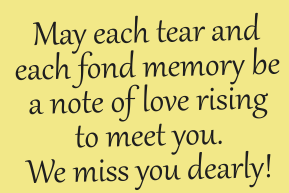 May each tear and
each fond memory be
a note of love rising
to meet you.
We miss you dearly!